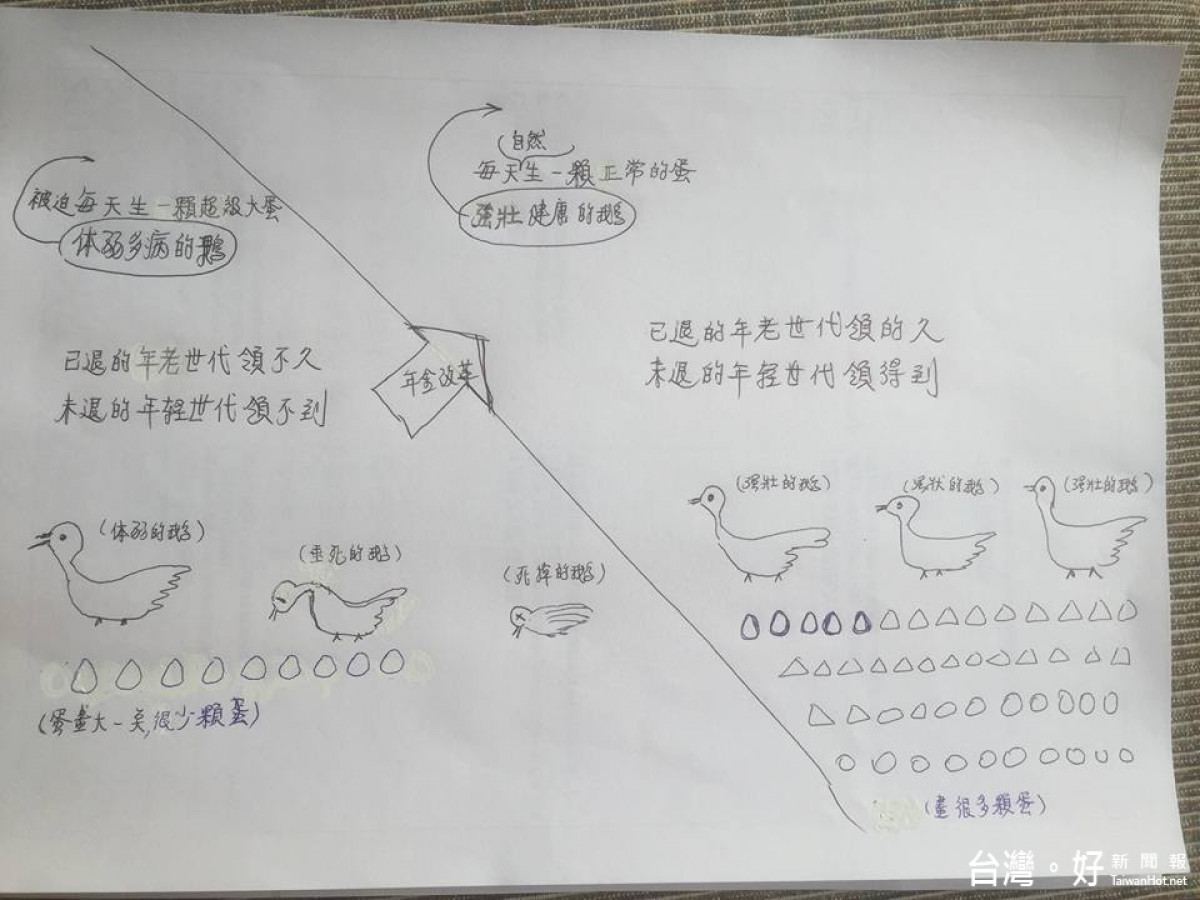 被迫每天生一顆超級大蛋
体弱多病的鵝
自然
每天生一顆正常的蛋
強壯健康的鵝
已退的年老世代領不久
未退的年轻世代領不到
年金改革
已退的年老世代領的久
未退的年轻世代領得到
(体弱的鵝)
(垂死的鵝)
(死掉的鵝)
(强壯的鵝)
(強狀的鵝)
(强壯的鵝)
(蛋畫大一点,很少顆蛋)
(畫很多顆蛋)
台灣。好 新聞報
TaiwanHot.net